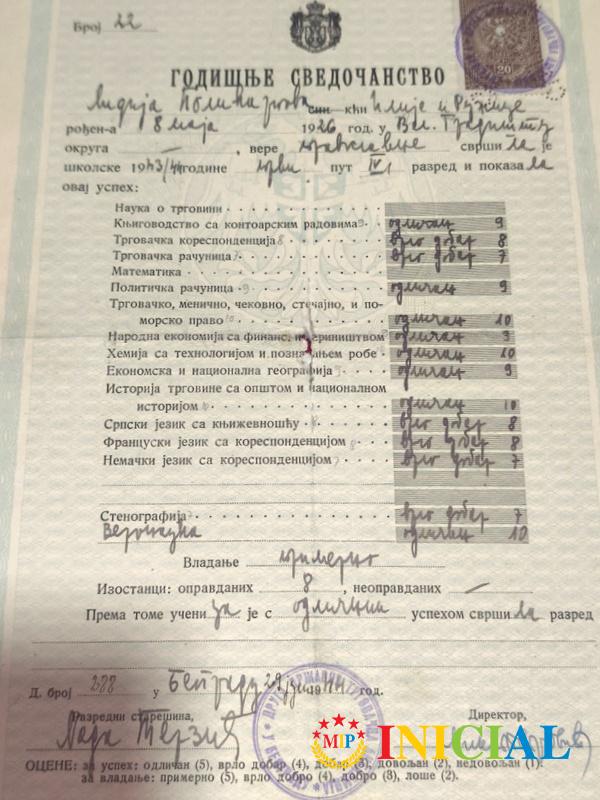 Број 22
20
ГОДИШЊЕ СВЕДОЧАНСТВО
Лидија син кћи Илије и Ружице
рођен-а 8 маја 1926 год. у Вел. Градишту
округа — , вере православне сврши ла је
школске 1943/44 године први пут IV разред и показа ла
овај успех:
Наука о трговини
Књиговодство са контоарским радовима одличан 9
Трговачка кореспонденција врло добар 8
Трговачка рачуница врло добар 7
Математика
Политичка рачуница одличан 9
Трговачко, менично, чековно, стечајно, и по-
морско право одличан 10
Народна економија са финанс. и цариништвом одличан
Хемија са технологијом и познавањем робе одличан 10
Економска и национална географија одличан 9
Историја трговине са општом и националном
историјом одличан 10
Српски језик са књижевношћу врло добар 8
Француски језик са кореспонденцијом врло добар 8
Немачки језик са кореспонденцијом врло добар 7
Стенографија врло добар 7
Веронаука одличан 10
Владање примерно
Изостанци: оправданих 8 , неоправданих —
Према томе учени ца је с одличним успехом сврши ла разред
Д. број у Београду 29 год.
Разредни старешина, Директор,
Нада Терзић
MIP INICIAL
ОЦЕНЕ: за успех: одличан (5), врло добар (4), добар (3), довољан (2), недовољан (1);
за владање: примерно (5), врло добро (4), добро (3), лоше (2).